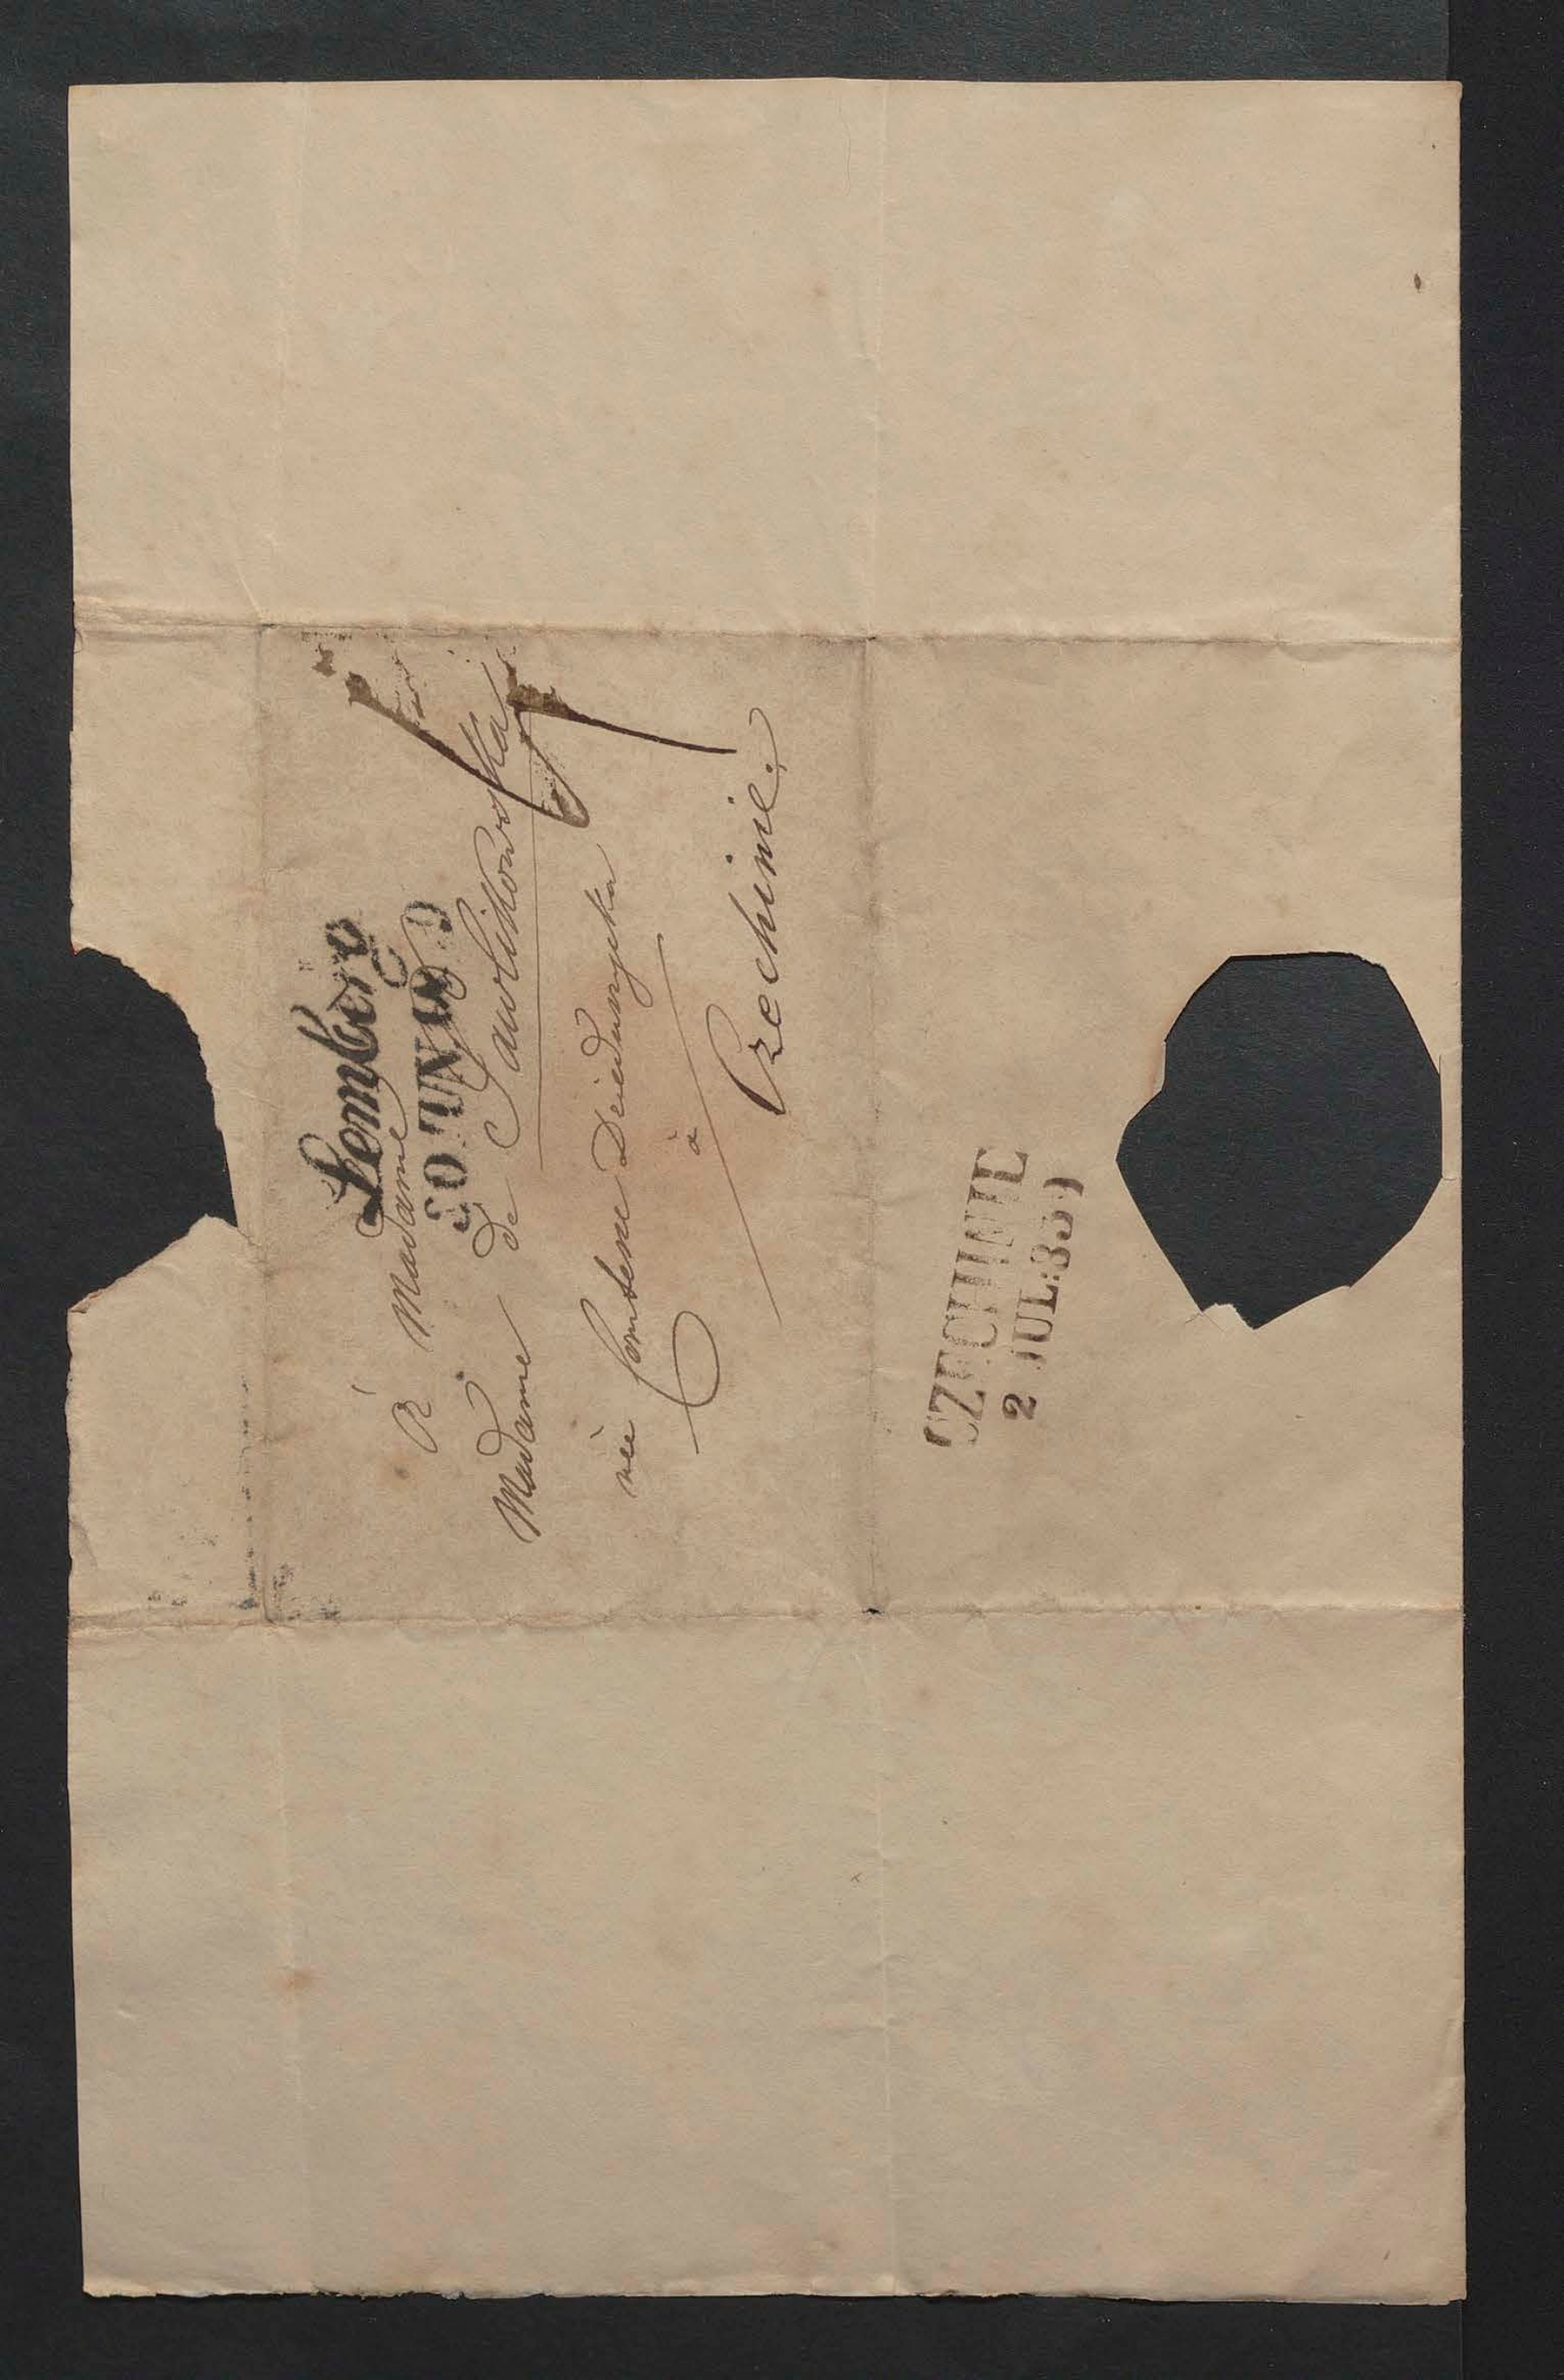 Lemberg
30 JUN
À Madame
Madame de Pawlikowska
née Comtesse Dzieduszycka
à
Czechinie.
CZECHINIE
2 JUL: